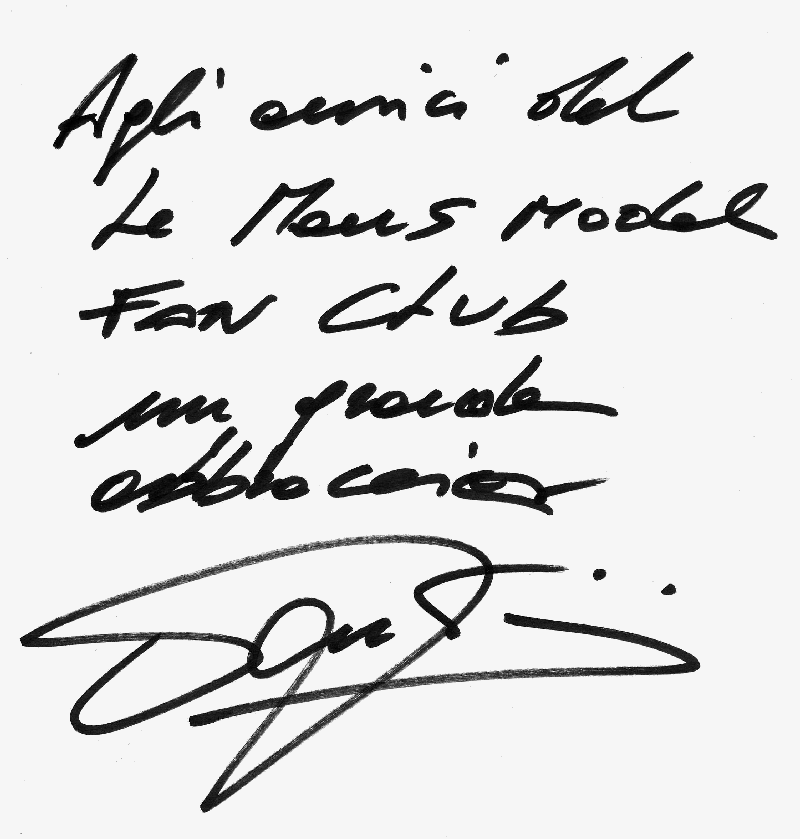 Agli amici del
Le Mans Model
FAN CLUB
un grande
abbraccio